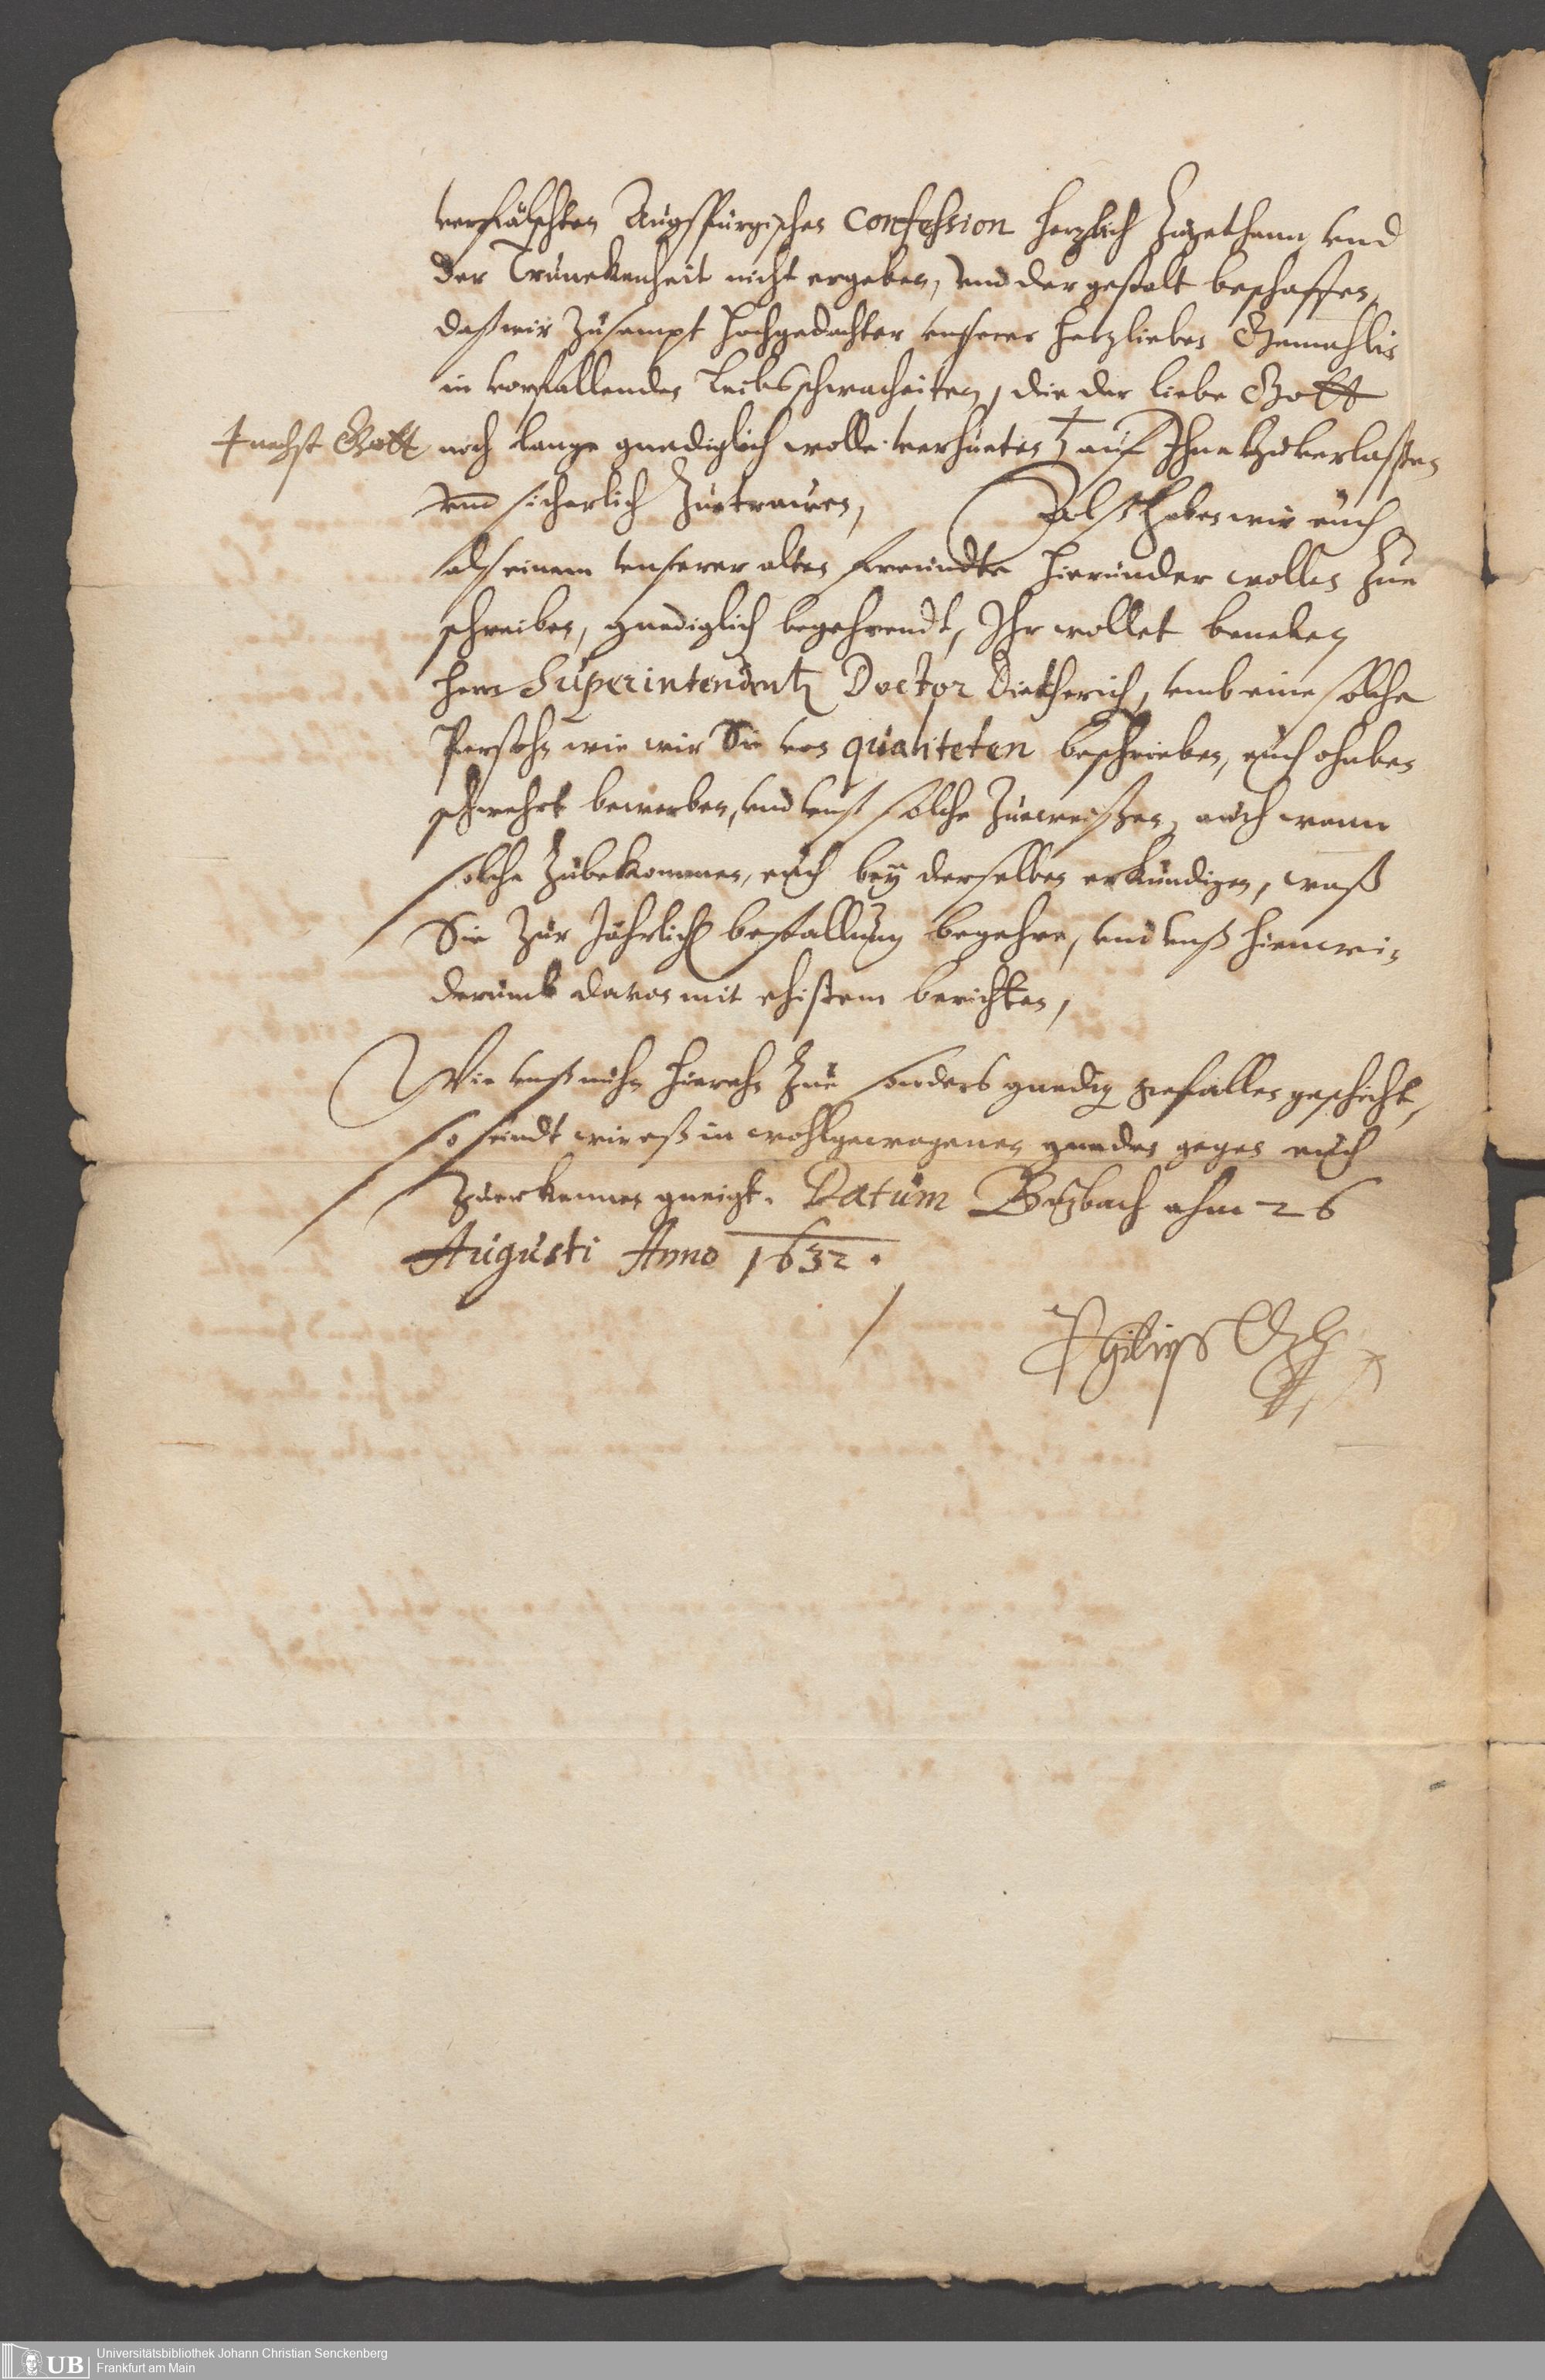 verfälschten Augspurgischen Confession herzlich zugethann, vnd
der Trunckenheit nicht ergeben, vnd der gestalt beschaffen,
daß wir zusampt hochgedachter vnserer hertzlieben Gemahlin
in vorfallenden Leibsschwacheiten, die der liebe Gott
noch lange gnediglich wolle verhueten † auf Ihne zuverlassen
† nechst Gott
vnd sicherlich zuetrauen, Alß haben wir euch
alß einem vnserer alten freundte hierunder wollen zue
schreiben, gnediglich begehrendt, Ihr wollet beneben
herr Superintendentz Doctor Dietherich, vmb eine solche
Persohn wie wir Sie von qualiteten beschrieben, euch ohnbe
schwehrt bewerben, vnd vnß solche zueweißen, auch wann
solche zubekommen, euch bey derselben erkundigen, waß
Sie zur Jährlich bestallung begehre, vnd vnß hienwi
derumb davon mit ehistem berichten,
Wie vnß nuhn hieran zue sonders gnedig gefallen geschicht,
so seindt wir eß in wohlgewogenen gnaden gegen euch
zuerkennen gneigt. Datum Butzbach ahm 26
Augusti Anno 1632.
Philips LzH
Universitätsbibliothek Johann Christian Senckenberg
Frankfurt am Main
UB